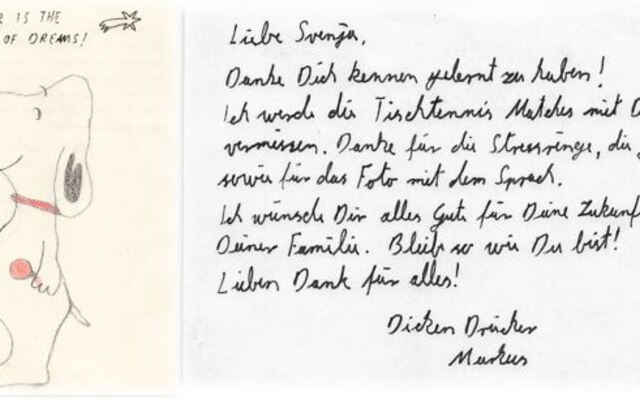 R IS THE
OF DREAMS!
Liebe Svenja,
Danke Dich kennen gelernt zu haben!
Ich werde die Tischtennis Matches mit D
vermissen. Danke für die Stressringe, die
sowie für das Foto mit dem Spruch.
Ich wünsche Dir alles Gute für Deine Zukunf
Deiner Familie. Bleib so wie Du bist!
Lieben Dank für alles!
Dicken Drücker
Markus